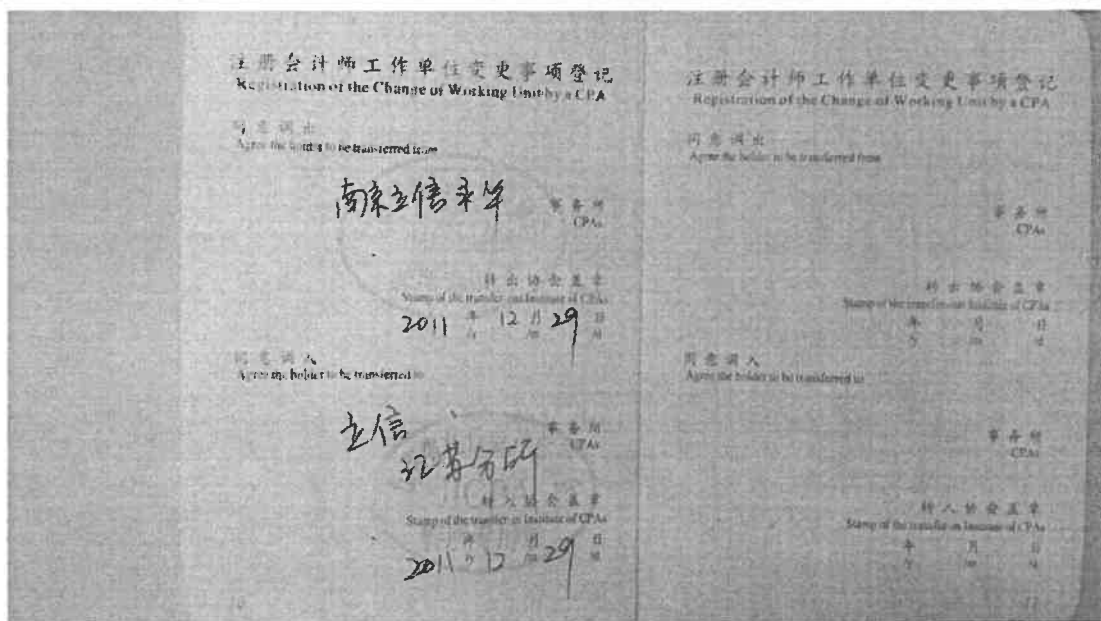 注册会计师工作单位变更事项登记
Registration of the Change of Working Unit by a CPA
同意调出
Agree the holder to be transferred from
南京立信永华
事务所
CPAs
转出协会盖章
Stamp of the transfer-out Institute of CPAs
2011 年 12 月 29 日
/y /m /d
同意调入
Agree the holder to be transferred to
立信
事务所
CPAs
江苏分所
转入协会盖章
Stamp of the transfer-in Institute of CPAs
年 月 日
2011 /y 12 /m 29 /d
10
注册会计师工作单位变更事项登记
Registration of the Change of Working Unit by a CPA
同意调出
Agree the holder to be transferred from
事务所
CPAs
转出协会盖章
Stamp of the transfer-out Institute of CPAs
年 月 日
/y /m /d
同意调入
Agree the holder to be transferred to
事务所
CPAs
转入协会盖章
Stamp of the transfer-in Institute of CPAs
年 月 日
/y /m /d
11